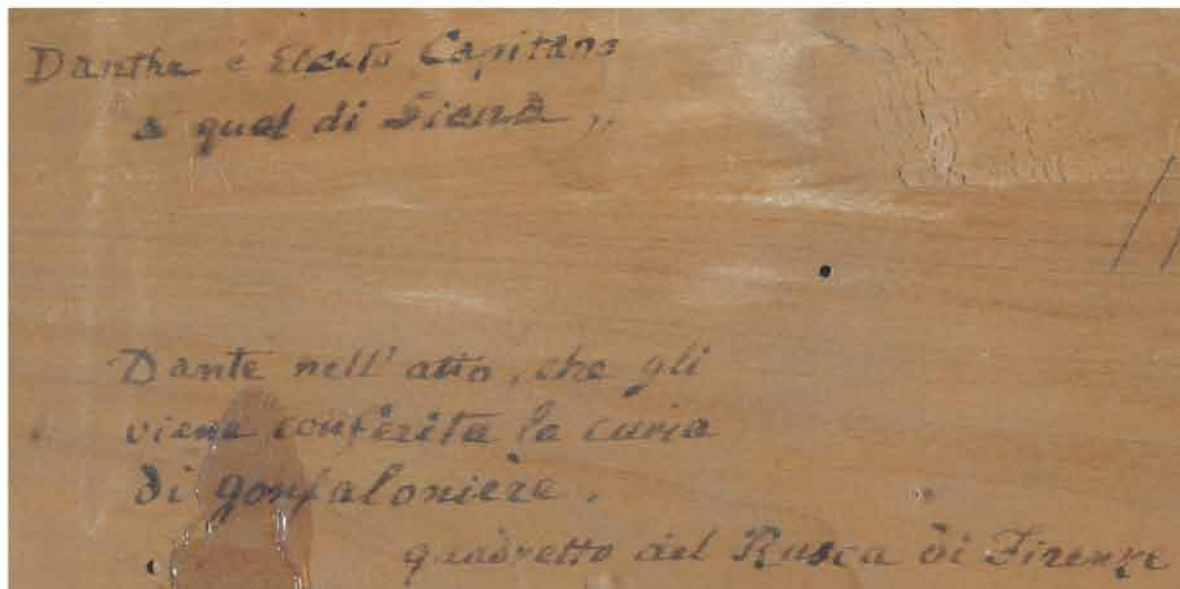 Danthe è Eletto Capitano
a quel di Siena „
Dante nell' atto, che gli
viene conferita la curia
di gonfaloniere.
quadretto del Rusca di Firenze